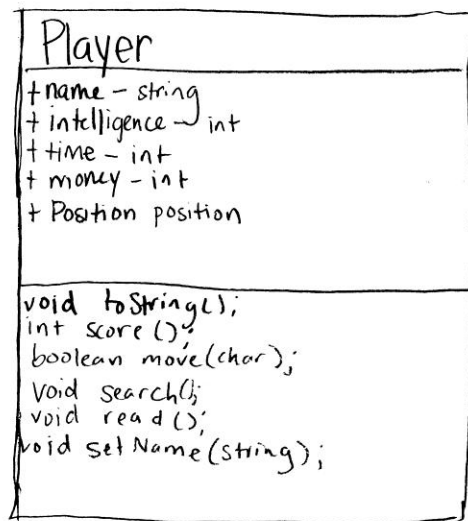 Player
+ name - string
+ intelligence - int
+ time - int
+ money - int
+ Position position
void toString();
int score();
boolean move(char);
void search();
void read();
void setName(string);